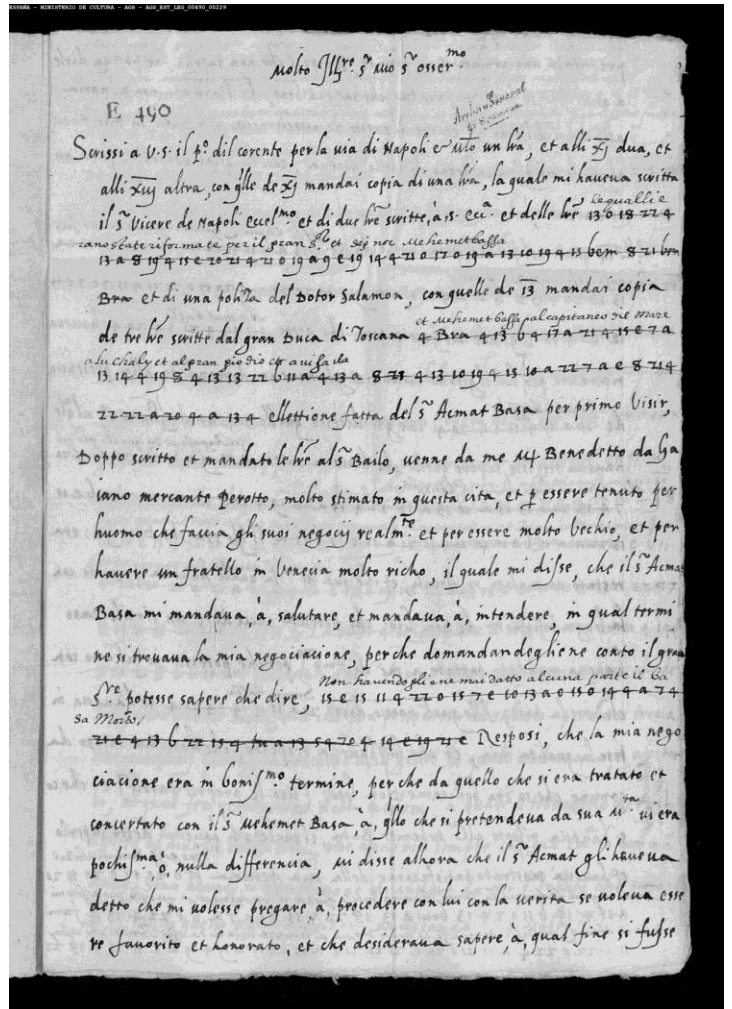 ESPAÑA - MINISTERIO DE CULTURA - AGS - AGS_EST_LEG_00490_00229
Molto Ill.re s.r mio s.r osser.mo
E 490
Scrissi a V.S. il p.o dil corente per la via di Napoli un lra, et alli xj dua, et
alli xiij altra, con glle de xj mandai copia di una lra, la quale mi haveva scritta
lequalli e
il s.r Vicere de Napoli eccel.mo et di due lre scritte, à, s. ecc.a et delle lre 13 0 18 22 4
rano state riformate per il gran s.r et sej noc Mehemet bassa
13 a 8 19 4 15 e 20 21 4 21 0 19 a 9 e 19 14 4 21 0 17 0 19 a 13 10 19 4 15 bem 8 21 bem
Bra et di una poliza del Dotor Salamon, con quelle de 13 mandai copia
et Mehemet bassa al capitaneo del Mare
de tre lre scritte dal gran Duca di Toscana 4 Bra 4 13 6 4 17 a 21 4 15 e 7 a
a luchaly et al gran
13 14 4 19 8 4 13 13 22 6 11 a 4 13 a 8 23 4 13 10 19 4 15 10 a 22 7 a e 8 21 4
22 22 a 20 4 a 13 4 ellettione fatta del s.r Acmat Basa per primo Visir,
Doppo scritto et mandato le lre al s.r Bailo, venne da me M Benedetto da Ga
iano mercante Perotto, molto stimato in questa cita, et p essere tenuto per
huomo che faccia gli suoi negocij realm.te et per essere molto Vechio, et per
havere un fratello in Venecia molto richo, il quale mi disse, che il s.r Acmat
Basa mi mandava, à, salutare, et mandava, à, intendere, in qual termi
ne si trovava la mia negociacione, perche domandandegliene conto il gran
Non havendogliene mai datto alcuna parte il ba
s.re potesse sapere che dire, 15 e 15 11 4 22 0 15 7 e 10 13 a e 15 0 14 4 a 7 4
sa Morto,
21 e 4 13 6 22 15 4 tu a 13 5 9 20 4 14 e 19 21 e Resposi, che la mia nego
ciacione era in bonis.mo termine, perche da quello che si era tratato et
concertato con il s.r Mehemet Basa, à, qllo che si pretendeva da sua M.ta vi era
pochis.ma, ò, nulla differencia, Mi disse alhora che il s.r Acmat gli haveva
detto che mi volesse pregare, à, procedere con lui con la verita se voleva esse
re favorito et honorato, et che desiderava sapere, à, qual fine si fusse